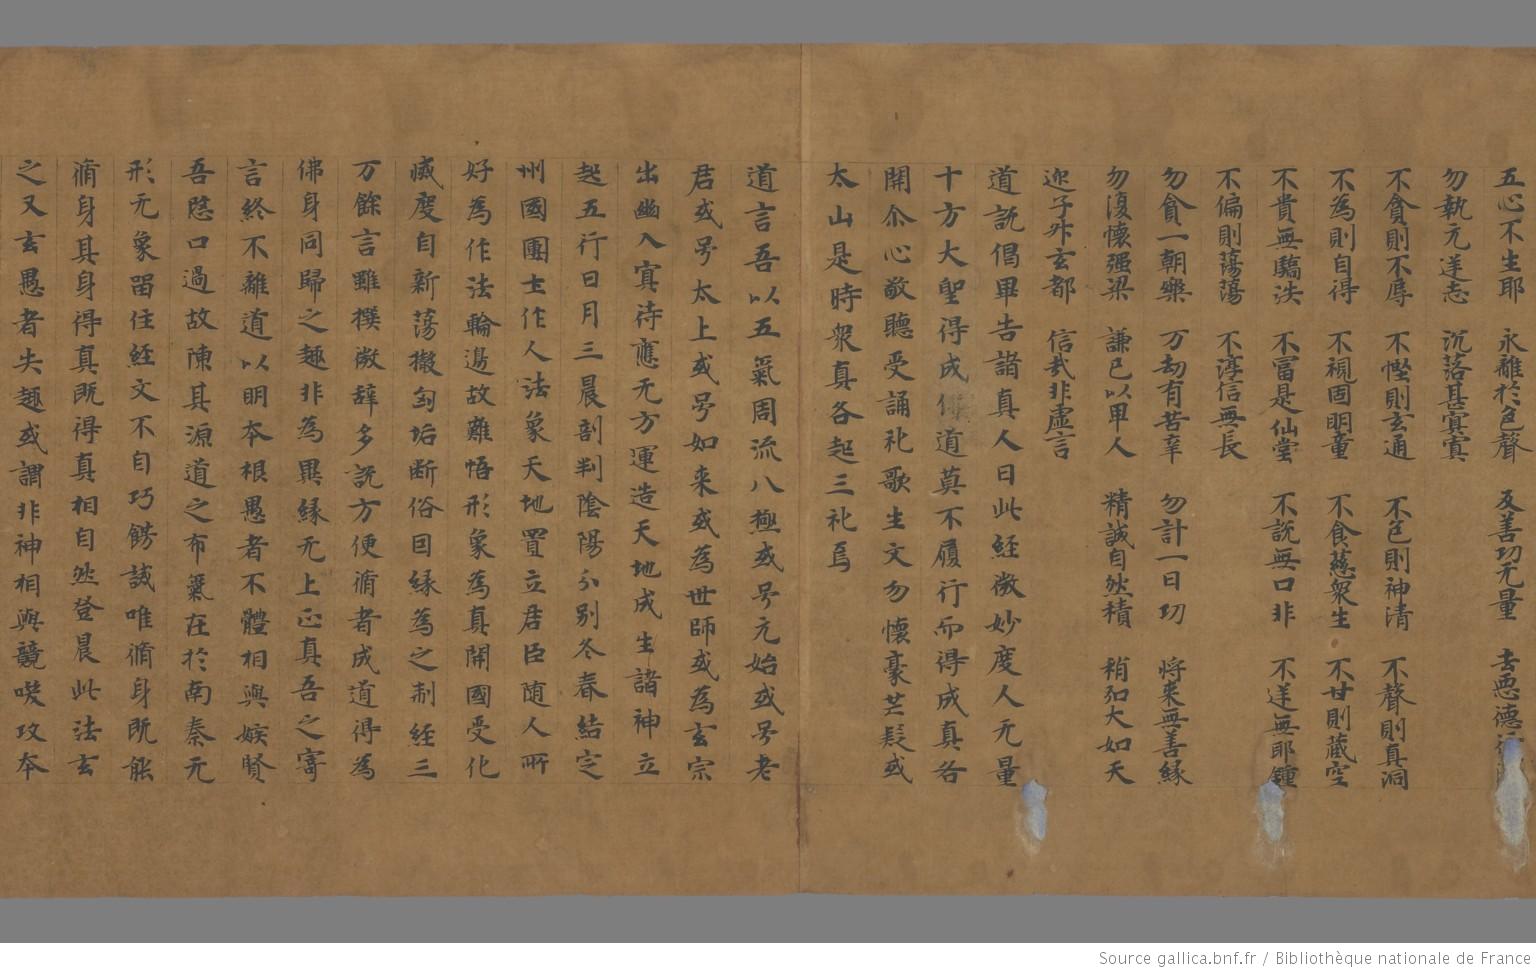 五心不生耶　永離於色聲　反善功无量　去惡德
勿執无逆志　沉落甚寘寘
不貪則不辱　不慳則玄通　不色則神清　不聲則真洞
不為則自得　不視固明童　不食慈衆生　不甘則蔵空
不貴無驕泆　不冨是仙堂　不說無口非　不逆無耶鍾
不偏則蕩蕩　不淳信無長
勿貪一朝樂　万劫有苦辛　勿計一日功　将來無善緣
勿復懷强梁　謙已以卑人　精誠自然積　稍如大如天
迎子昇玄都　信哉非虛言
道説倡畢告諸真人曰此経微妙度人无量
十方大聖得成道莫不履行而得成真各
開尒心敬聽受誦礼歌生文勿懷豪芒疑或
太山是時衆真各起三礼焉
道言吾以五氣周流八極或号元始或号老
君或号太上或号如来或為世師或為玄宗
出幽入寘待應无方運造天地成生諸神立
起五行日月三晨剖判陰陽分別冬春結定
州國團士作人法象天地置立居臣随人所
好為作法輪邊故難悟形象為真開國受化
威度自新蕩撤匈垢断俗因緣為之制経三
万餘言雖撲微辞多說方便脩者成道得為
佛身同歸之趣非為異緣无上正真吾之寄
言終不離道以明夲根愚者不體相與嫉賢
吾隱口過故陳其源道之布氣在於南秦元
形无象罶住経文不自巧餝誡唯脩身既能
脩身其身得真既得真相自然登晨此法玄
之又玄愚者失趣或謂非神相與競唉攻夲
Source gallica.bnf.fr / Bibliothèque nationale de France